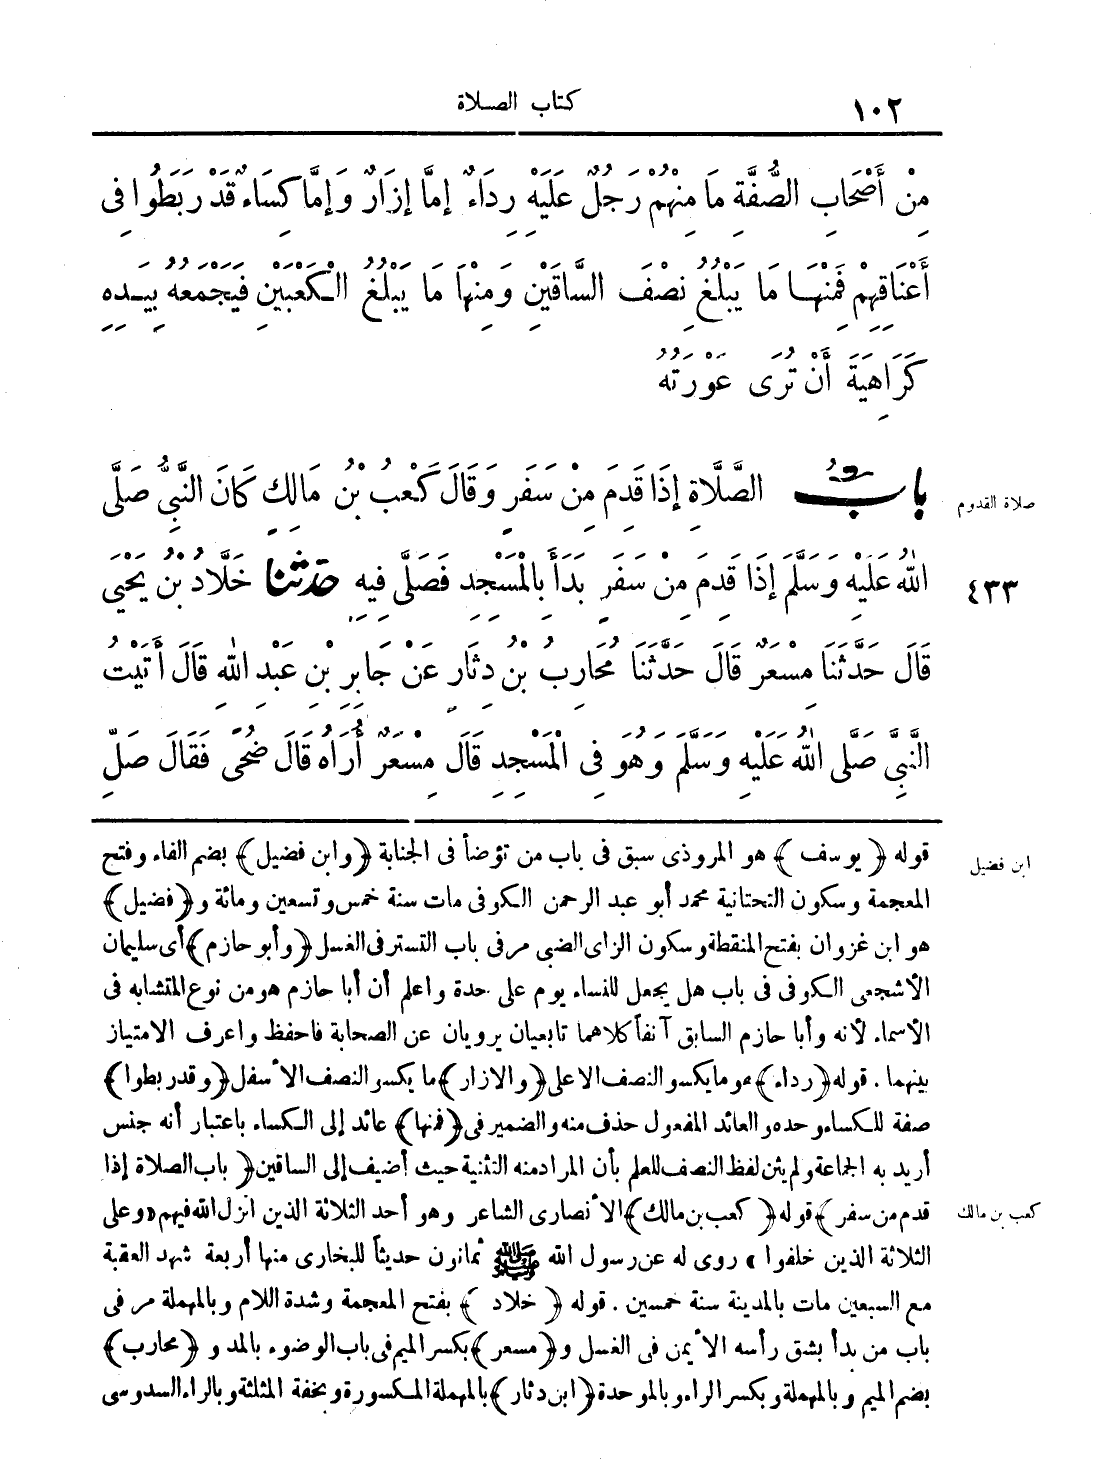 ١٠٢
كتاب الصلاة
مِنْ أَصْحَابِ الصُّفَّةِ مَا مِنْهُمْ رَجُلٌ عَلَيْهِ رِدَاءٌ إِمَّا إِزَارٌ وَإِمَّا كِسَاءٌ قَدْ رَبَطُوا فِى
أَعْنَاقِهِمْ فَمِنْهَا مَا يَبْلُغُ نِصْفَ السَّاقَيْنِ وَمِنْهَا مَا يَبْلُغُ الْكَعْبَيْنِ فَيَجْمَعُهُ بِيَدِهِ
كَرَاهِيَةَ أَنْ تُرَى عَوْرَتُهُ
بابُ الصَّلَاةِ إِذَا قَدِمَ مِنْ سَفَرٍ وَقَالَ كَعْبُ بْنُ مَالِكٍ كَانَ النَّبِىُّ صَلَّى
صلاة القدوم
اللهُ عَلَيْهِ وَسَلَّمَ إِذَا قَدِمَ مِنْ سَفَرٍ بَدَأَ بِالْمَسْجِدِ فَصَلَّى فِيهِ حَدَّثَنَا خَلَّادُ بْنُ يَحْيَى
٤٣٣
قَالَ حَدَّثَنَا مِسْعَرٌ قَالَ حَدَّثَنَا مُحَارِبُ بْنُ دِثَارٍ عَنْ جَابِرِ بْنِ عَبْدِ اللهِ قَالَ أَتَيْتُ
النَّبِىَّ صَلَّى اللهُ عَلَيْهِ وَسَلَّمَ وَهُوَ فِى الْمَسْجِدِ قَالَ مِسْعَرٌ أُرَاهُ قَالَ ضُحًى فَقَالَ صَلِّ
قوله ﴿يوسف﴾ هو المروذى سبق فى باب من توضأ فى الجنابة ﴿وابن فضيل﴾ بضم الفاء وفتح
ابن فضيل
المعجمة وسكون التحتانية محمد أبو عبد الرحمن الكوفى مات سنة خمس وتسعين ومائة و﴿فضيل﴾
هو ابن غزوان بفتح المنقطة وسكون الزاى الضبى مر فى باب التستر فى الغسل ﴿وأبو حازم﴾ أى سليمان
الأشجعى الكوفى فى باب هل يجعل للنساء يوم على حدة واعلم أن أبا حازم هو من نوع المتشابه فى
الأسماء لأنه وأبا حازم السابق آنفاً كلاهما تابعيان يرويان عن الصحابة فاحفظ واعرف الامتياز
بينهما . قوله ﴿رداء﴾ هو ما يكسو النصف الاعلى ﴿والازار﴾ ما يكسو النصف الأسفل ﴿وقد ربطوا﴾
صفة للكساء وحده والعائد المفعول حذف منه والضمير فى ﴿فمنها﴾ عائد إلى الكساء باعتبار أنه جنس
أريد به الجماعة ولم يثن لفظ النصف للعلم بأن المراد منه التثنية حيث أضيف إلى الساقين ﴿باب الصلاة إذا
قدم من سفر﴾ قوله ﴿كعب بن مالك﴾ الأنصارى الشاعر وهو أحد الثلاثة الذين انزل الله فيهم «وعلى
كعب بن مالك
الثلاثة الذين خلفوا» روى له عن رسول الله ﷺ ثمانون حديثاً للبخارى منها أربعة شهد العقبة
مع السبعين مات بالمدينة سنة خمسين . قوله ﴿خلاد﴾ بفتح المعجمة وشدة اللام وبالمهملة مر فى
باب من بدأ بشق رأسه الأيمن فى الغسل و﴿مسعر﴾ بكسر الميم فى باب الوضوء بالمد و﴿محارب﴾
بضم الميم وبالمهملة وبكسر الراء وبالموحدة ﴿ابن دثار﴾ بالمهملة المكسورة وبخفة المثلثة وبالراء السدوسى